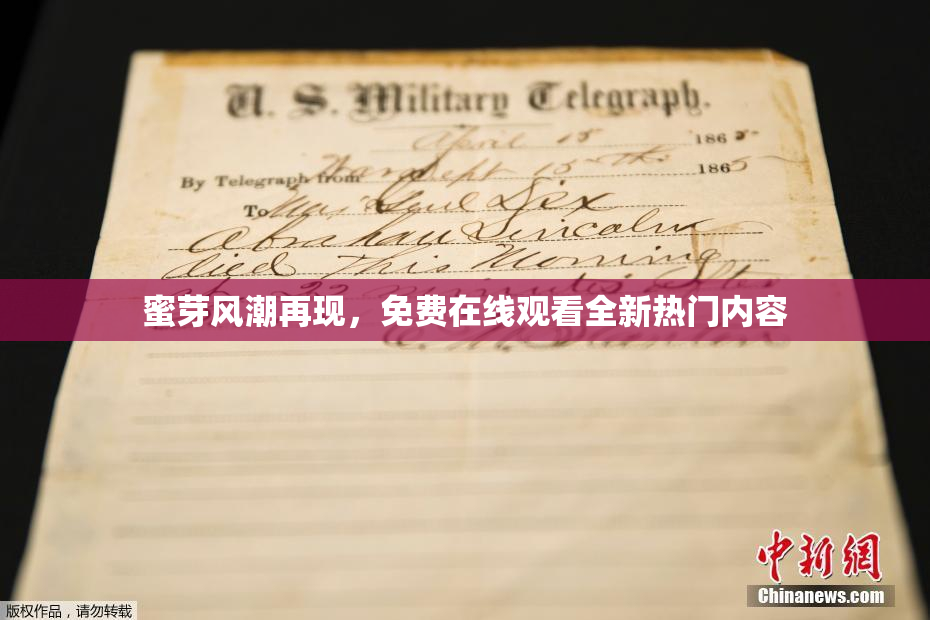 U. S. Military Telegraph.
April 15 1865
By Telegraph from War Dept 15th 1865
To Maj Genl Dix
Abraham Lincoln
died This Morning
22 minutes after
蜜芽风潮再现，免费在线观看全新热门内容
E. M. Stanton
中新网
Chinanews.com
版权作品，请勿转载